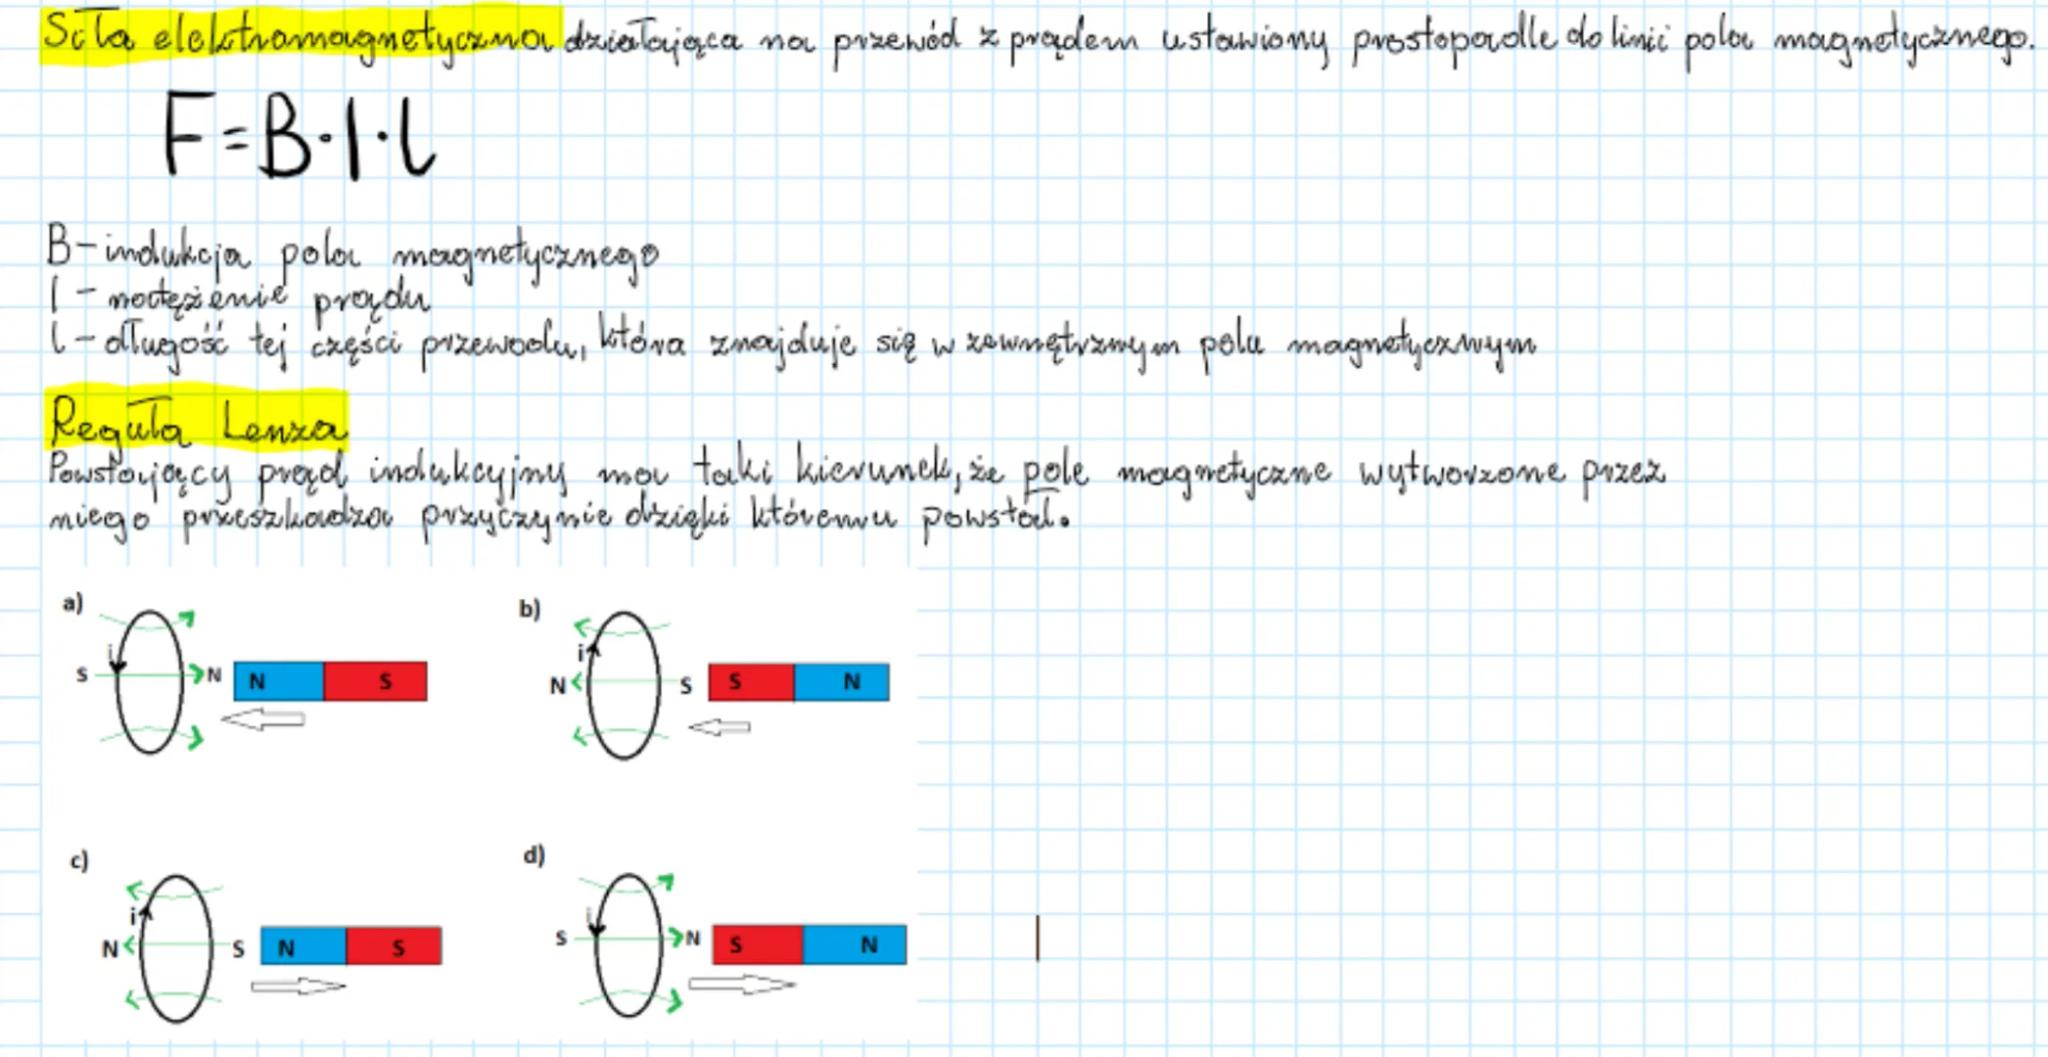 Siła elektromagnetyczna działająca na przewód z prądem ustawiony prostopadle do linii pola magnetycznego.
F=B·I·l
B-indukcja pola magnetycznego
I - natężenie prądu
l - długość tej części przewodu, która znajduje się w zewnętrznym polu magnetycznym
Reguła Lenza
Powstający prąd indukcyjny ma taki kierunek, że pole magnetyczne wytworzone przez
niego przeszkadza przyczynie dzięki któremu powstał.
a)
b)
i
S N N S
i
N S S N
c)
d)
i
N S N S
i
S N S N